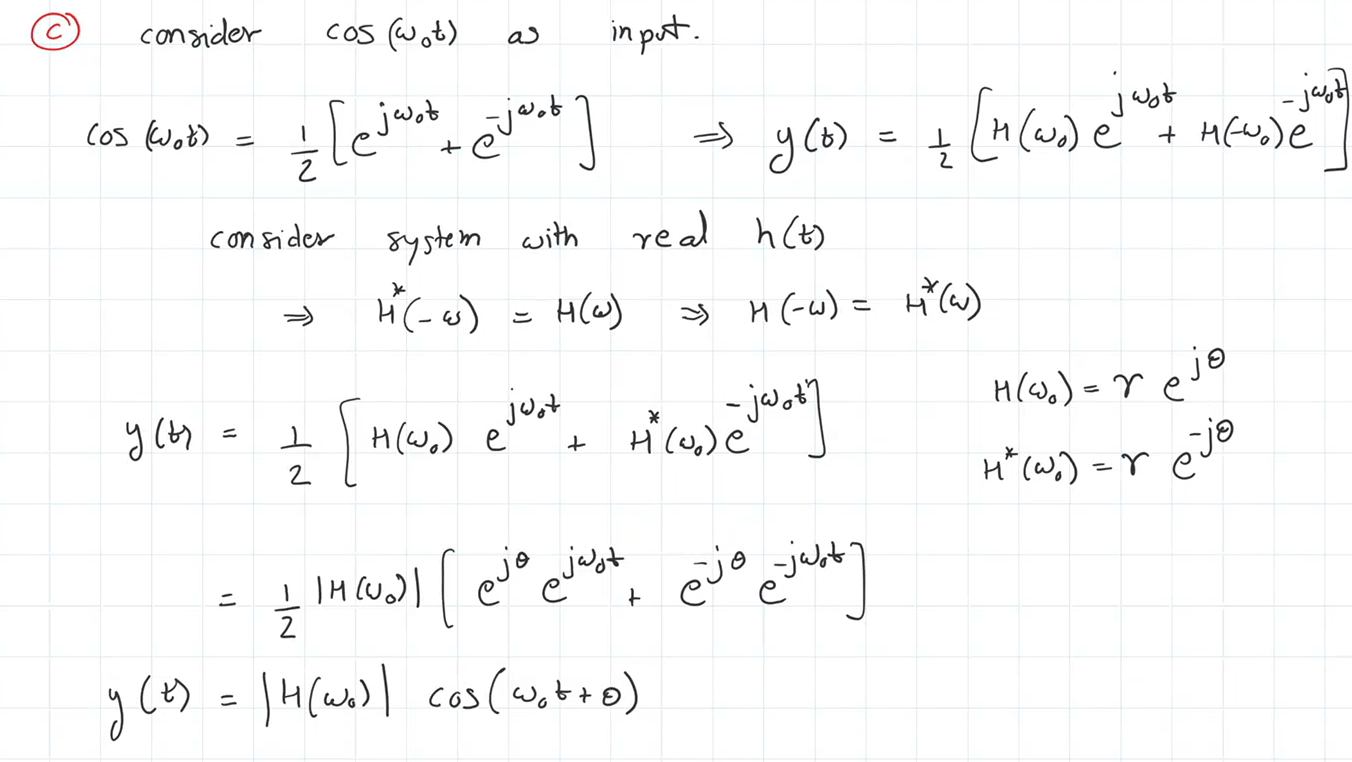 ⓒ consider cos(ω₀t) as input.
cos(ω₀t) = 1/2 [e^{jω₀t} + e^{-jω₀t}] ⇒ y(t) = 1/2 [H(ω₀) e^{jω₀t} + H(-ω₀) e^{-jω₀t}]
consider system with real h(t)
⇒ H*(-ω) = H(ω) ⇒ H(-ω) = H*(ω)
H(ω₀) = r e^{jθ}
y(t) = 1/2 [H(ω₀) e^{jω₀t} + H*(ω₀) e^{-jω₀t}]
H*(ω₀) = r e^{-jθ}
= 1/2 |H(ω₀)| [e^{jθ} e^{jω₀t} + e^{-jθ} e^{-jω₀t}]
y(t) = |H(ω₀)| cos(ω₀t + θ)